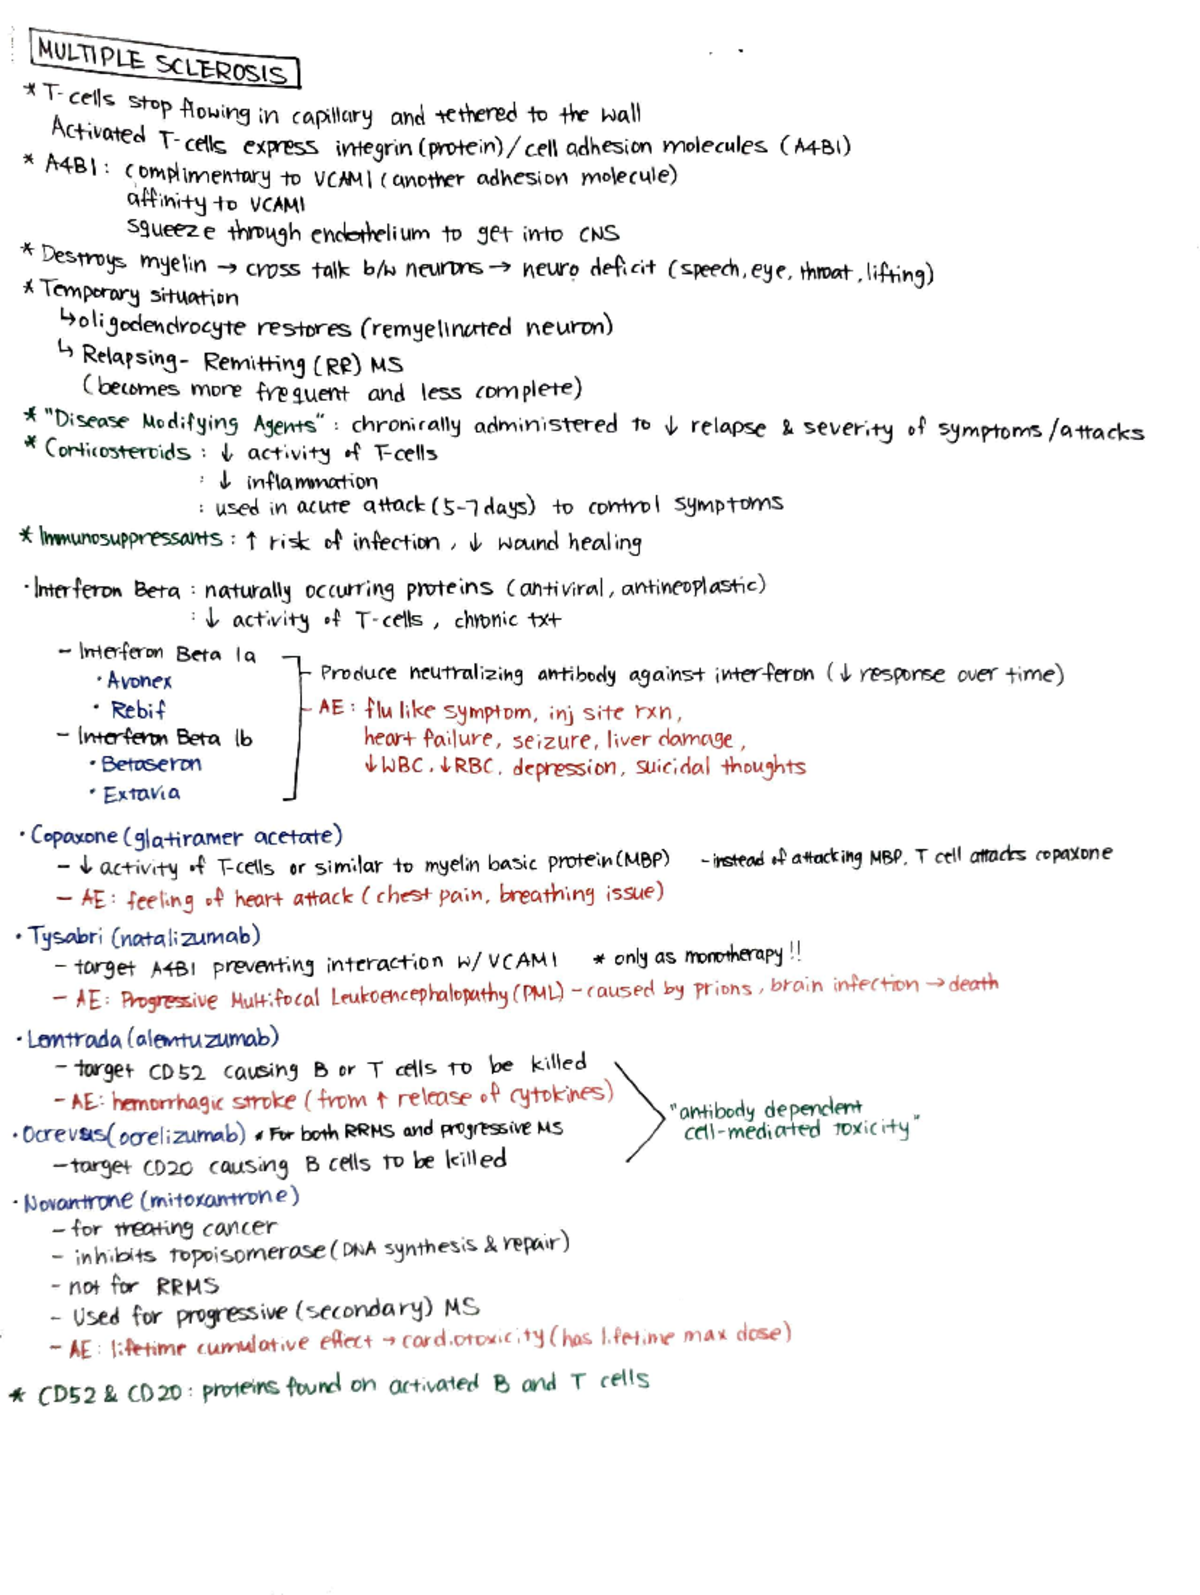 MULTIPLE SCLEROSIS
* T-cells stop flowing in capillary and tethered to the wall
Activated T-cells express integrin (protein) / cell adhesion molecules (A4B1)
* A4B1 : complimentary to VCAM1 (another adhesion molecule)
affinity to VCAM1
squeeze through endothelium to get into CNS
* Destroys myelin → cross talk b/w neurons → neuro deficit (speech, eye, throat, lifting)
* Temporary situation
↳ oligodendrocyte restores (remyelinated neuron)
↳ Relapsing- Remitting (RR) MS
(becomes more frequent and less complete)
* "Disease Modifying Agents" : chronically administered to ↓ relapse & severity of symptoms / attacks
* Corticosteroids : ↓ activity of T-cells
: ↓ inflammation
: used in acute attack (5-7 days) to control symptoms
* Immunosuppressants : ↑ risk of infection, ↓ wound healing
· Interferon Beta : naturally occurring proteins (antiviral, antineoplastic)
: ↓ activity of T-cells, chronic txt
- Interferon Beta 1a
· Avonex
· Rebif
- Interferon Beta 1b
· Betaseron
· Extavia
- Produce neutralizing antibody against interferon (↓ response over time)
- AE : flu like symptom, inj site rxn,
heart failure, seizure, liver damage,
↓WBC, ↓RBC, depression, suicidal thoughts
· Copaxone (glatiramer acetate)
- ↓ activity of T-cells or similar to myelin basic protein (MBP) - instead of attacking MBP, T cell attacks copaxone
- AE : feeling of heart attack (chest pain, breathing issue)
· Tysabri (natalizumab)
- target A4B1 preventing interaction w/ VCAM1 * only as monotherapy!!
- AE : Progressive Multifocal Leukoencephalopathy (PML) - caused by prions, brain infection → death
· Lemtrada (alemtuzumab)
- target CD52 causing B or T cells to be killed
- AE : hemorrhagic stroke (from ↑ release of cytokines)
· Ocrevus (ocrelizumab) * For both RRMS and progressive MS
- target CD20 causing B cells to be killed
"antibody dependent
cell-mediated toxicity"
· Novantrone (mitoxantrone)
- for treating cancer
- inhibits topoisomerase (DNA synthesis & repair)
- not for RRMS
- Used for progressive (secondary) MS
- AE : lifetime cumulative effect → cardiotoxicity (has lifetime max dose)
* CD52 & CD20 : proteins found on activated B and T cells